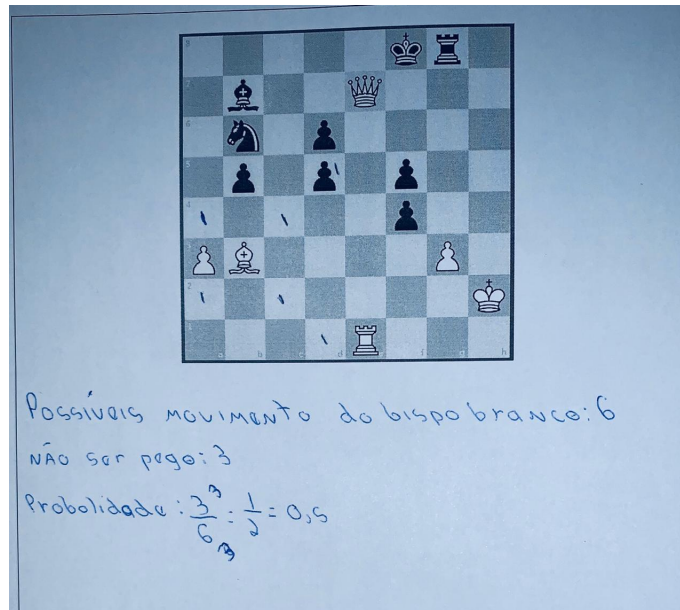 Possíveis movimento do bispo branco: 6
Não ser pego: 3
Probolidade: 3/6 3 3 = 1/2 = 0,5